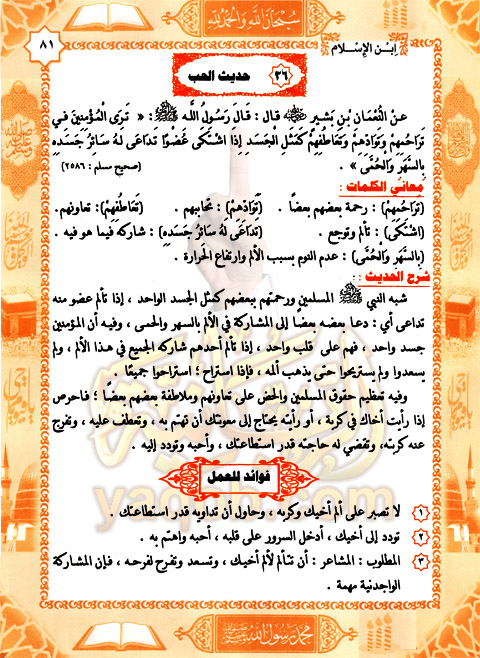 سبحان الله والحمد لله
ابن الإسلام
٨١
٣٦ حديث الحب
عن النُّعْمَان بْنِ بَشِيرٍ ﵁ قال : قَالَ رَسُولُ اللَّه ﷺ : « تَرَى المُؤْمِنِينَ فِي
تَرَاحُمِهِمْ وَتَوَادِّهِمْ وَتَعَاطُفِهِمْ كَمَثَلِ الْجَسَدِ إِذَا اشْتَكَى عُضْوًا تَدَاعَى لَهُ سَائِرُ جَسَدِهِ
بِالسَّهَرِ وَالْحُمَّى » .
(صحيح مسلم : ٢٥٨٦)
معاني الكلمات :
(تَرَاحُمِهِمْ) : رحمة بعضهم بعضًا . (تَوَادِّهِمْ) : تحابهم . (تَعَاطُفِهِمْ) : تعاونهم .
(اشْتَكَى) : تألم وتوجع . (تَدَاعَى لَهُ سَائِرُ جَسَدِهِ) : شاركه فيما هو فيه .
(بِالسَّهَرِ وَالْحُمَّى) : عدم النوم بسبب الألم وارتفاع الحرارة .
شرح الحديث :
شبه النبي ﷺ المسلمين ورحمتهم ببعضهم كمثل الجسد الواحد ، إذا تألم عضو منه
تداعى أي : دعا بعضه بعضًا إلى المشاركة في الألم بالسهر والحمى ، وفيه أن المؤمنين
جسد واحد ، فهم على قلب واحد ، إذا تألم أحدهم شاركه الجميع في هذا الألم ، ولم
يسعدوا ولم يستريحوا حتى يذهب ألمه ، فإذا استراح ؛ استراحوا جميعًا .
وفيه تعظيم حقوق المسلمين والحض على تعاونهم وملاطفة بعضهم بعضًا ؛ فاحرص
إذا رأيت أخاك في كربة ، أو رأيته يحتاج إلى معونتك أن تهتم به ، وتعطف عليه ، وتفرج
عنه كربته ، وتقضي له حاجته قدر استطاعتك ، وأحبه وتودد إليه .
فوائد للعمل
١ لا تصبر على ألم أخيك وكربه ، وحاول أن تداويه قدر استطاعتك .
٢ تودد إلى أخيك ، أدخل السرور على قلبه ، أحبه واهتم به .
٣ المطلوب : المشاعر : أن تتألم لألم أخيك ، وتسعد وتفرح لفرحه ، فإن المشاركة
الواجدنية مهمة .
محمد رسول الله